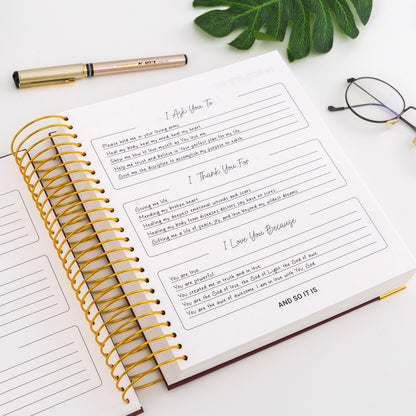 I Ask You To
Please hold me in your loving arms.
Heal my body, heal my mind, heal my heart.
Show me how to love myself as You love me.
Help me trust and believe in Your perfect plan for my life.
Give me the discipline to accomplish my purpose on earth.
I Thank You For
Giving me life.
Mending my broken heart.
Healing my deepest emotional wounds and scars.
Healing my body from diseases doctors say have no cures.
Gifting me a life of peace, joy, and love beyond my wildest dreams.
I Love You Because
You are love.
You are powerful.
You created me in truth and in love.
You are the God of love, the God of Light, the God of awe.
You are the awe of awesome. I am in love with You, God.
AND SO IT IS